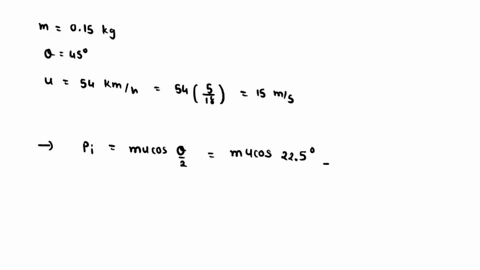 m = 0.15 kg
θ = 45°
u = 54 km/h = 54 (5/18) = 15 m/s
→ Pi = mu cos θ/2 = mu cos 22.5°